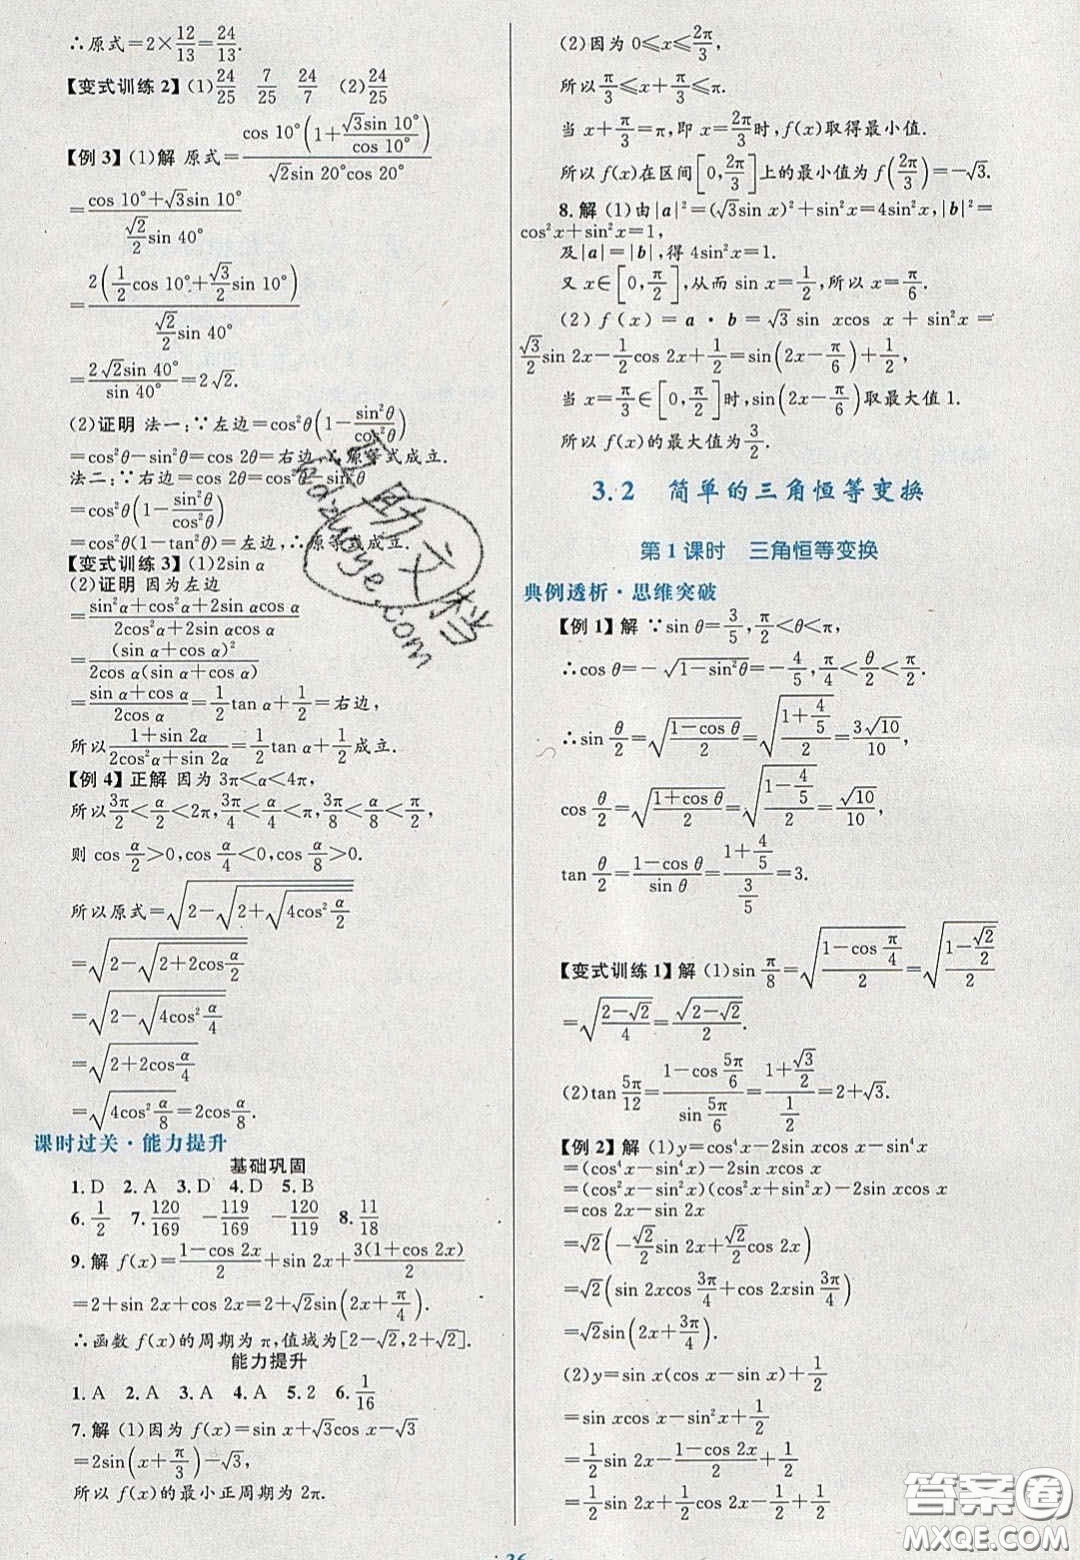 ∴原式=2×12/13=24/13.
【变式训练2】(1)24/25 7/25 24/7 (2)24/25
【例3】(1)解 原式=cos 10°(1+√3sin 10°/cos 10°)/(√2sin 20°cos 20°)
=(cos 10°+√3sin 10°)/((√2/2)sin 40°)
=2((1/2)cos 10°+(√3/2)sin 10°)/((√2/2)sin 40°)
=2√2sin 40°/sin 40°=2√2.
(2)证明 法一:∵左边=cos²θ(1-sin²θ/cos²θ)
=cos²θ-sin²θ=cos 2θ=右边,∴原等式成立.
法二:∵右边=cos 2θ=cos²θ-sin²θ
=cos²θ(1-sin²θ/cos²θ)
=cos²θ(1-tan²θ)=左边,∴原等式成立.
【变式训练3】(1)2sin α
(2)证明 因为左边
=(sin²α+cos²α+2sin αcos α)/(2cos²α+2sin αcos α)
=(sin α+cos α)²/(2cos α(sin α+cos α))
=(sin α+cos α)/(2cos α)=1/2 tan α+1/2=右边,
所以(1+sin 2α)/(2cos²α+sin 2α)=1/2 tan α+1/2成立.
【例4】正解 因为3π<α<4π,
所以3π/2<α/2<2π,3π/4<α/4<π,3π/8<α/8<π/2,
则 cos α/2>0,cos α/4<0,cos α/8>0.
所以原式=√(2-√(2+√(4cos² α/2)))
=√(2-√(2+2cos α/2))
=√(2-√(4cos² α/4))
=√(2+2cos α/4)
=√(4cos² α/8)=2cos α/8.
课时过关·能力提升
基础巩固
1.D 2.A 3.D 4.D 5.B
6.1/2 7.120/169 -119/169 -120/119 8.11/18
9.解 f(x)=(1-cos 2x)/2+sin 2x+3(1+cos 2x)/2
=2+sin 2x+cos 2x=2+√2sin(2x+π/4).
∴函数 f(x)的周期为 π,值域为[2-√2,2+√2].
能力提升
1.A 2.A 3.A 4.A 5.2 6.1/16
7.解 (1)因为 f(x)=sin x+√3cos x-√3
=2sin(x+π/3)-√3,
所以 f(x)的最小正周期为 2π.
(2)因为 0≤x≤2π/3,
所以π/3≤x+π/3≤π.
当 x+π/3=π,即 x=2π/3时,f(x)取得最小值.
所以 f(x)在区间[0,2π/3]上的最小值为 f(2π/3)=-√3.
8.解 (1)由|a|²=(√3sin x)²+sin²x=4sin²x,|b|²=
cos²x+sin²x=1,
及|a|=|b|,得 4sin²x=1.
又 x∈[0,π/2],从而 sin x=1/2,所以 x=π/6.
(2) f(x)=a·b=√3 sin xcos x+sin²x=
√3/2 sin 2x-1/2 cos 2x+1/2=sin(2x-π/6)+1/2,
当 x=π/3∈[0,π/2]时,sin(2x-π/6)取最大值 1.
所以 f(x)的最大值为3/2.
3.2 简单的三角恒等变换
第1课时 三角恒等变换
典例透析·思维突破
【例1】解 ∵sin θ=3/5,π/2<θ<π,
∴cos θ=-√(1-sin²θ)=-4/5,π/4<θ/2<π/2.
∴sin θ/2=√((1-cos θ)/2)=√((1+4/5)/2)=3√10/10,
cos θ/2=√((1+cos θ)/2)=√((1-4/5)/2)=√10/10,
tan θ/2=(1-cos θ)/sin θ=(1+4/5)/(3/5)=3.
【变式训练1】解 (1)sin π/8=√((1-cos π/4)/2)=√((1-√2/2)/2)
=√((2-√2)/4)=√(2-√2)/2.
(2)tan 5π/12=(1-cos 5π/6)/sin 5π/6=(1+√3/2)/(1/2)=2+√3.
【例2】解 (1)y=cos⁴x-2sin xcos x-sin⁴x
=(cos⁴x-sin⁴x)-2sin xcos x
=(cos²x-sin²x)(cos²x+sin²x)-2sin xcos x
=cos 2x-sin 2x
=√2(-√2/2 sin 2x+√2/2 cos 2x)
=√2(sin 2xcos 3π/4+cos 2xsin 3π/4)
=√2sin(2x+3π/4).
(2)y=sin x(cos x-sin x)+1/2
=sin xcos x-sin²x+1/2
=1/2 sin 2x-(1-cos 2x)/2+1/2
=1/2 sin 2x+1/2 cos 2x
26
互助文档
hdzuoye.com
答案圈
MXQE.COM